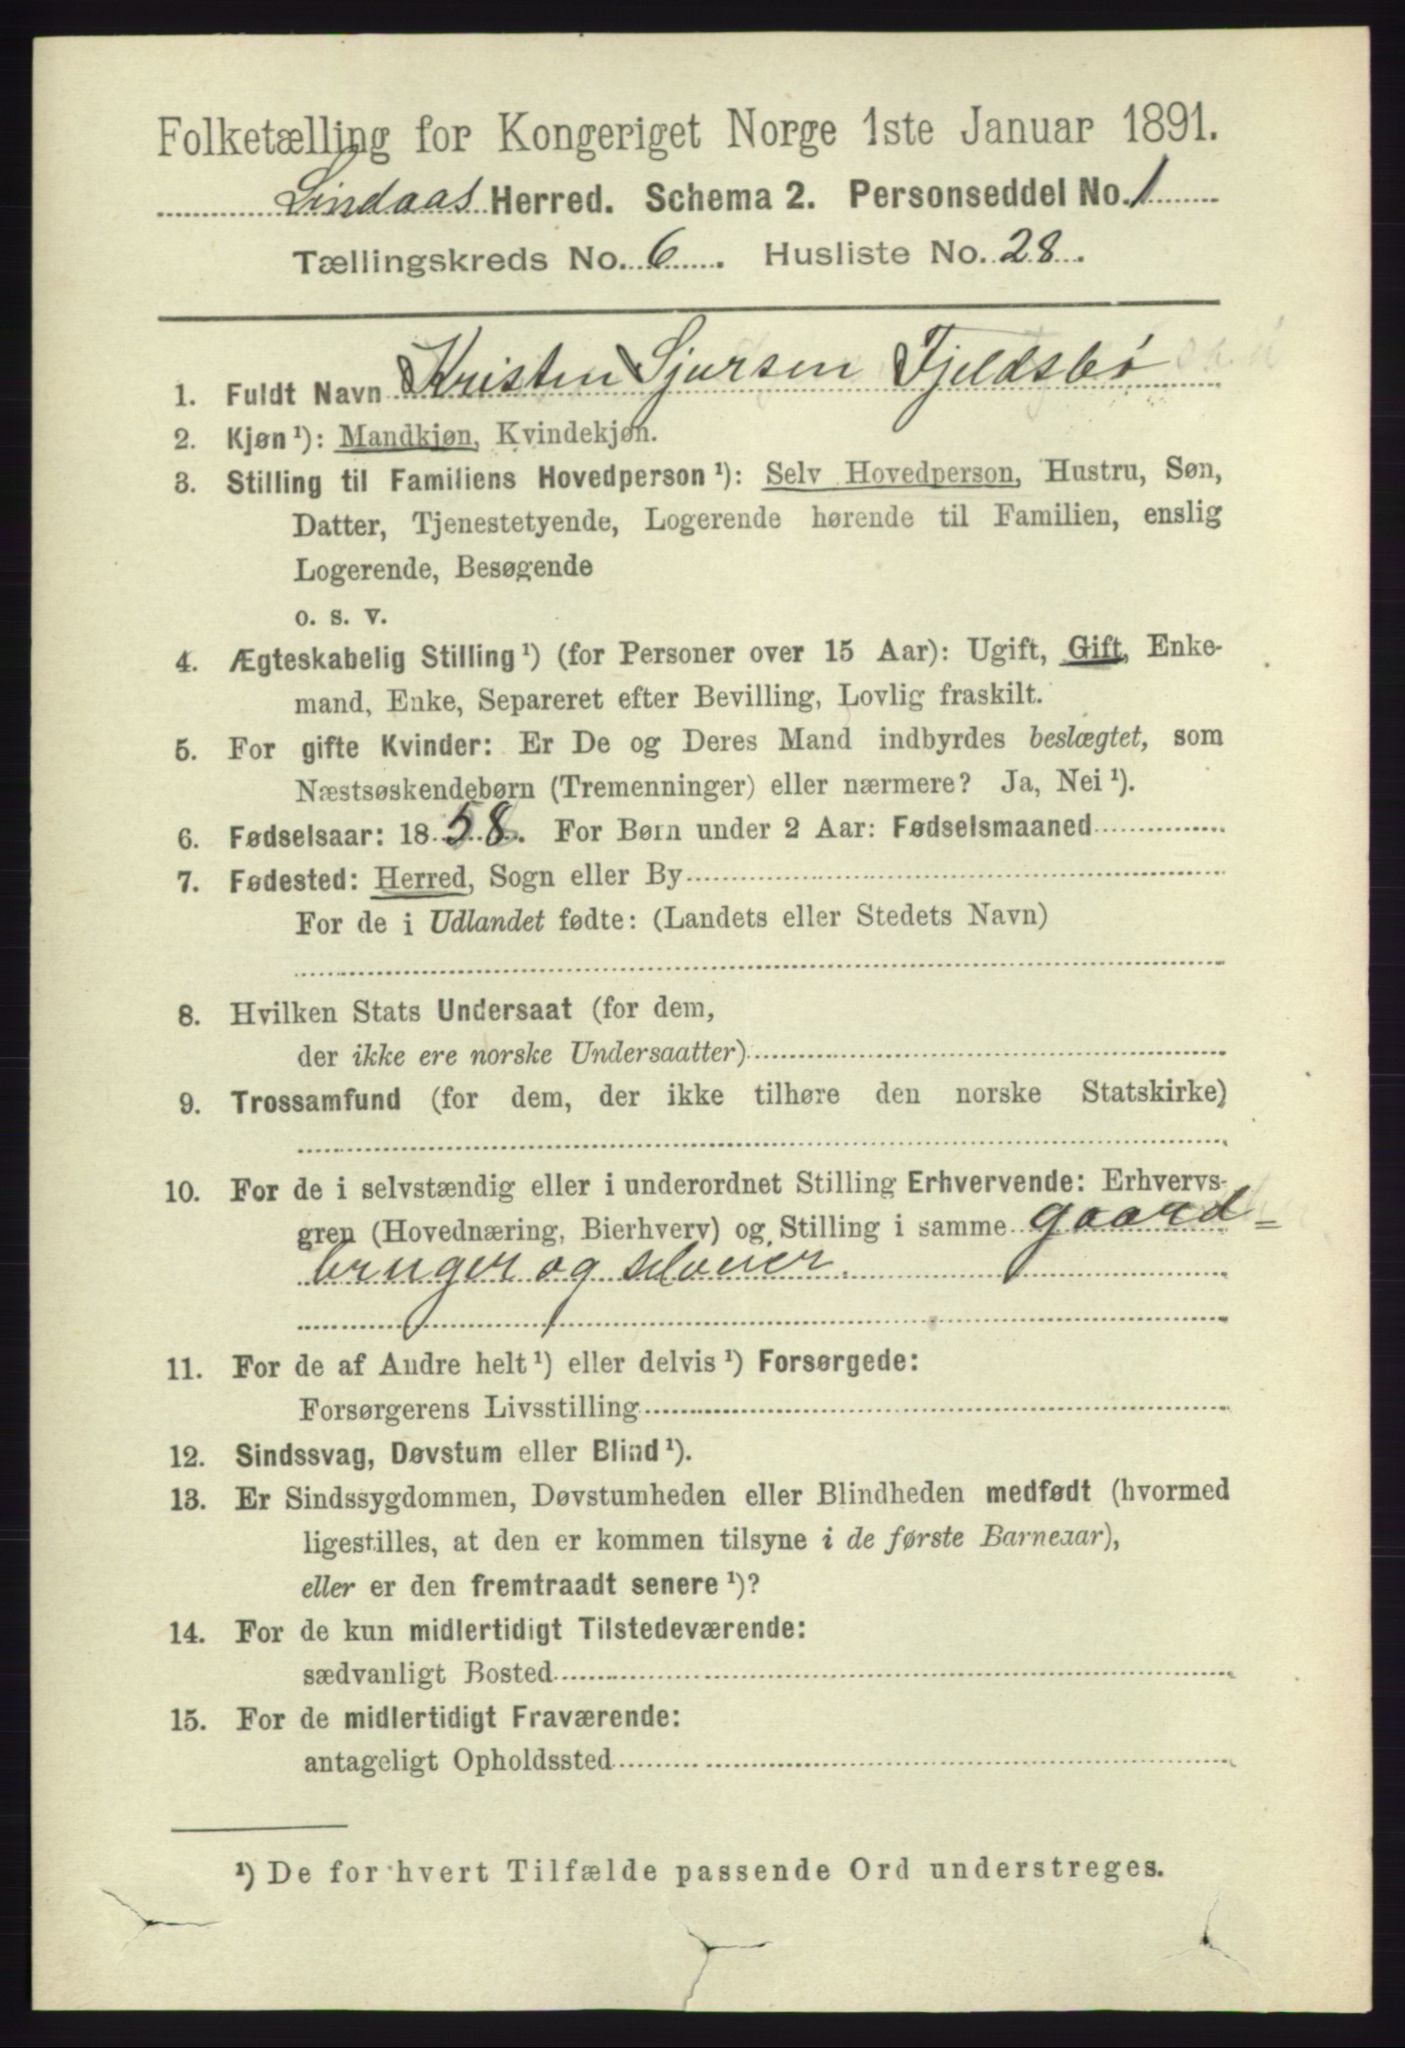 Folketælling for Kongeriget Norge 1ste Januar 1891.
Lindaas Herred. Schema 2. Personseddel No. 1
Tællingskreds No. 6. Husliste No. 28.
1. Fuldt Navn Kristen Sjursen Fjeldsbø
2. Kjøn¹): Mandkjøn, Kvindekjøn.
3. Stilling til Familiens Hovedperson¹): Selv Hovedperson, Hustru, Søn,
Datter, Tjenestetyende, Logerende hørende til Familien, enslig
Logerende, Besøgende
o. s. v.
4. Ægteskabelig Stilling¹) (for Personer over 15 Aar): Ugift, Gift, Enke-
mand, Enke, Separeret efter Bevilling, Lovlig fraskilt.
5. For gifte Kvinder: Er De og Deres Mand indbyrdes beslægtet, som
Næstsøskendebørn (Tremenninger) eller nærmere? Ja, Nei¹).
6. Fødselsaar: 1858. For Børn under 2 Aar: Fødselsmaaned
7. Fødested: Herred, Sogn eller By
For de i Udlandet fødte: (Landets eller Stedets Navn)
8. Hvilken Stats Undersaat (for dem,
der ikke ere norske Undersaatter)
9. Trossamfund (for dem, der ikke tilhøre den norske Statskirke)
10. For de i selvstændig eller i underordnet Stilling Erhvervende: Erhvervs-
gren (Hovednæring, Bierhverv) og Stilling i samme gaard=
bruger og selveier.
11. For de af Andre helt¹) eller delvis¹) Forsørgede:
Forsørgerens Livsstilling
12. Sindssvag, Døvstum eller Blind¹).
13. Er Sindssygdommen, Døvstumheden eller Blindheden medfødt (hvormed
ligestilles, at den er kommen tilsyne i de første Barneaar),
eller er den fremtraadt senere¹)?
14. For de kun midlertidigt Tilstedeværende:
sædvanligt Bosted
15. For de midlertidigt Fraværende:
antageligt Opholdssted
¹) De for hvert Tilfælde passende Ord understreges.